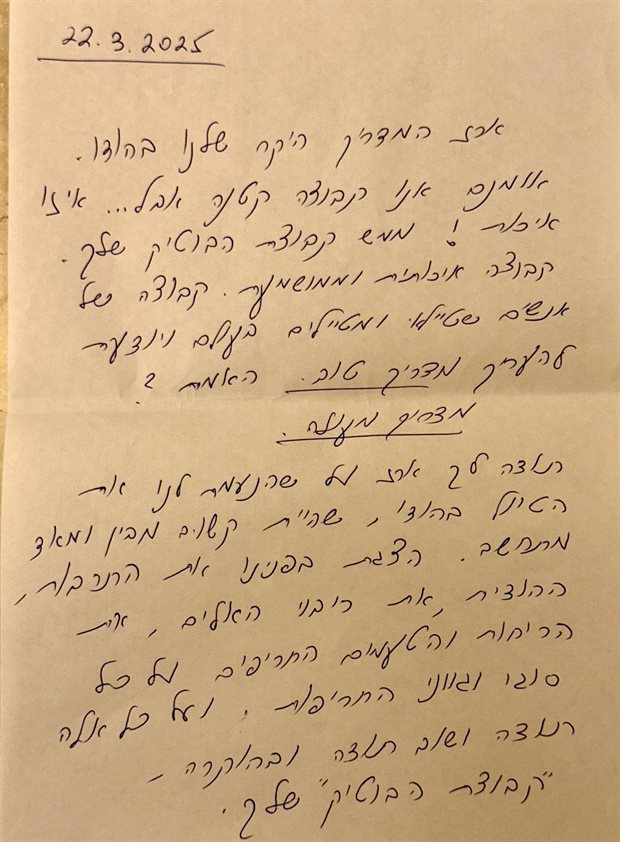 22.3.2025
ארז המדריך היקר שלנו בהודו.
אומנם אנו קבוצה קטנה אבל... איזו
איכות! ממש קבוצת הבוטיק שלך.
קבוצה איכותית וממושמעת. קבוצה של
אנשים שטיילו ומטיילים בעולם ויודעת
להעריך מדריך טוב. האמת?
מדריך מעולה.
תודה לך ארז על שהנעמת לנו את
הטיול בהודו, שהיית קשוב מבין ומאוד
מתחשב. הצגת בפנינו את התרבות,
ההודית, את ריבוי האלים, את
הריחות והטעמים החריפים על כל
סוגי וגווני החריפות, ועל כל אלה
תודה ושוב תודה ובהוקרה -
"קבוצת הבוטיק" שלך.